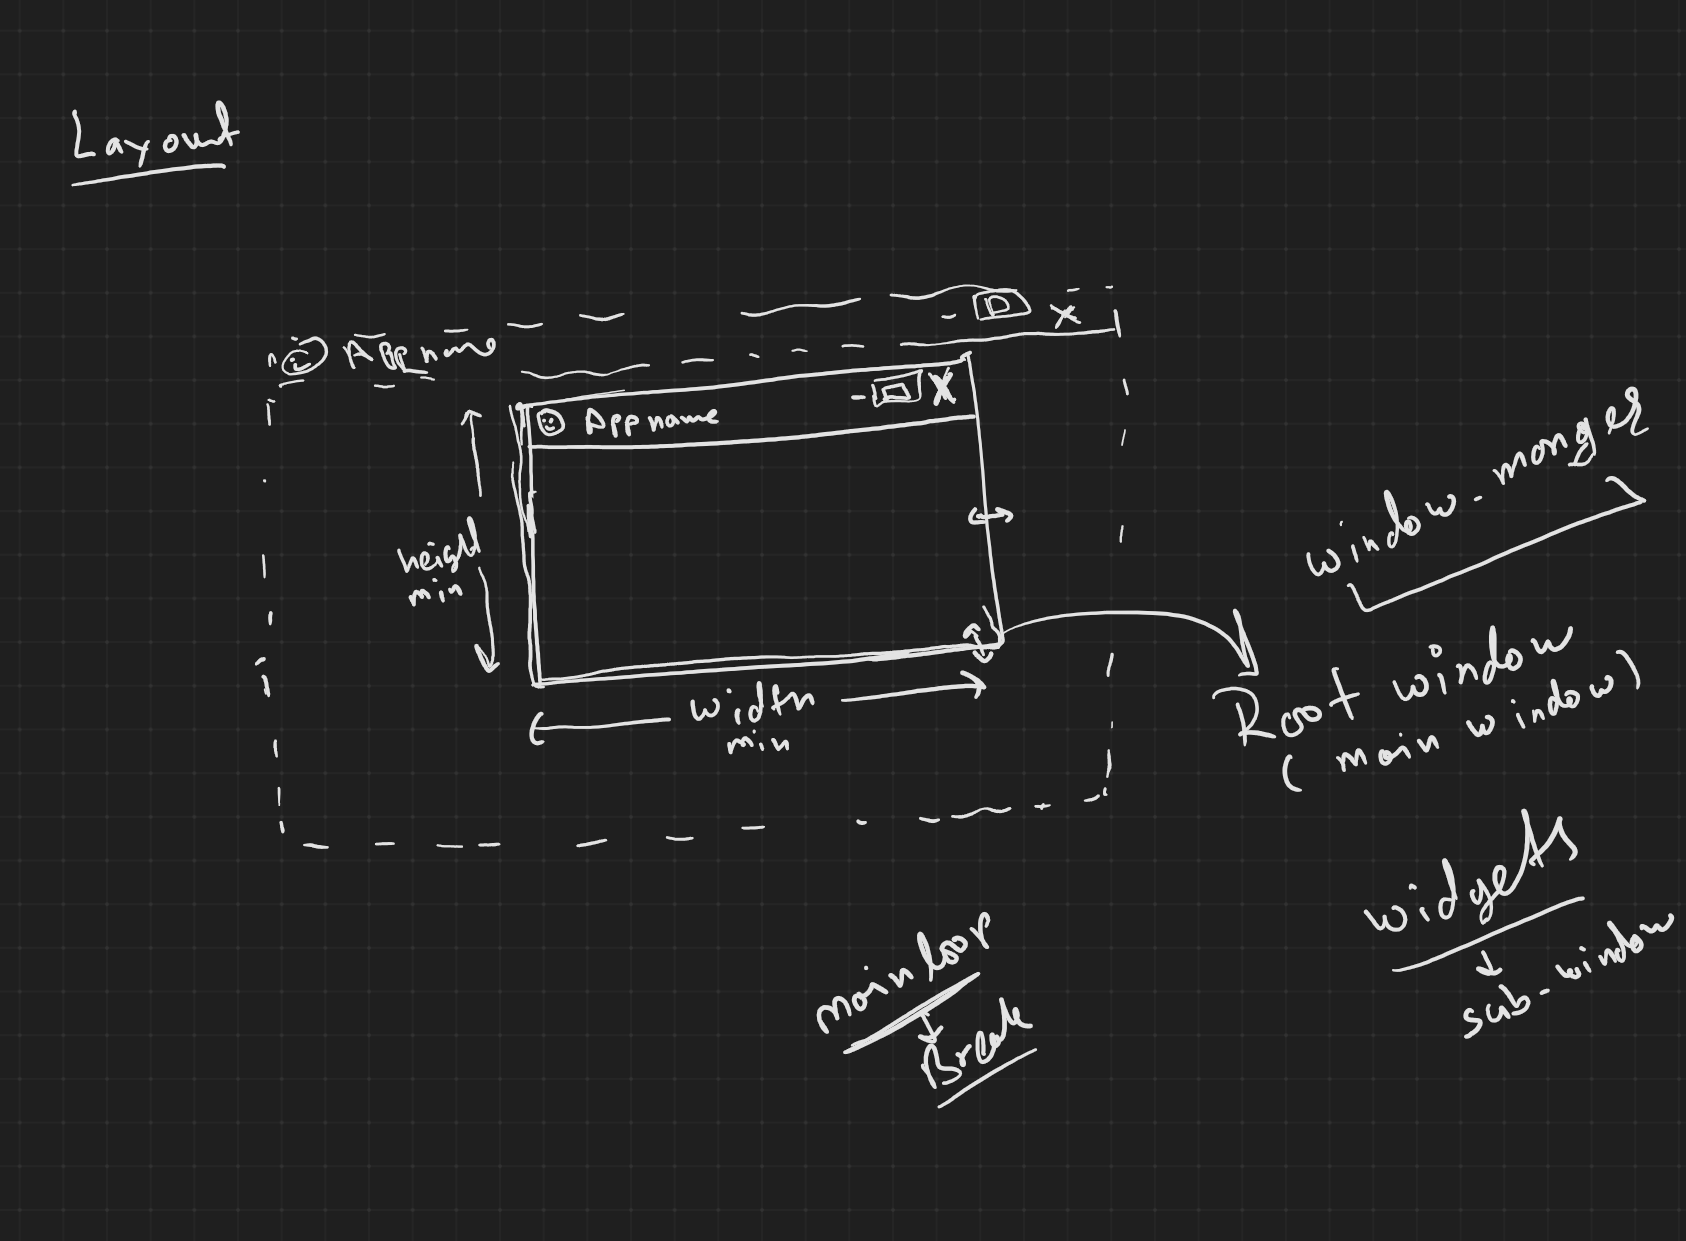 Layout
App name
App name
height
min
width
min
window-manger
Root window
(main window)
widgets
sub-window
mainloop
Break